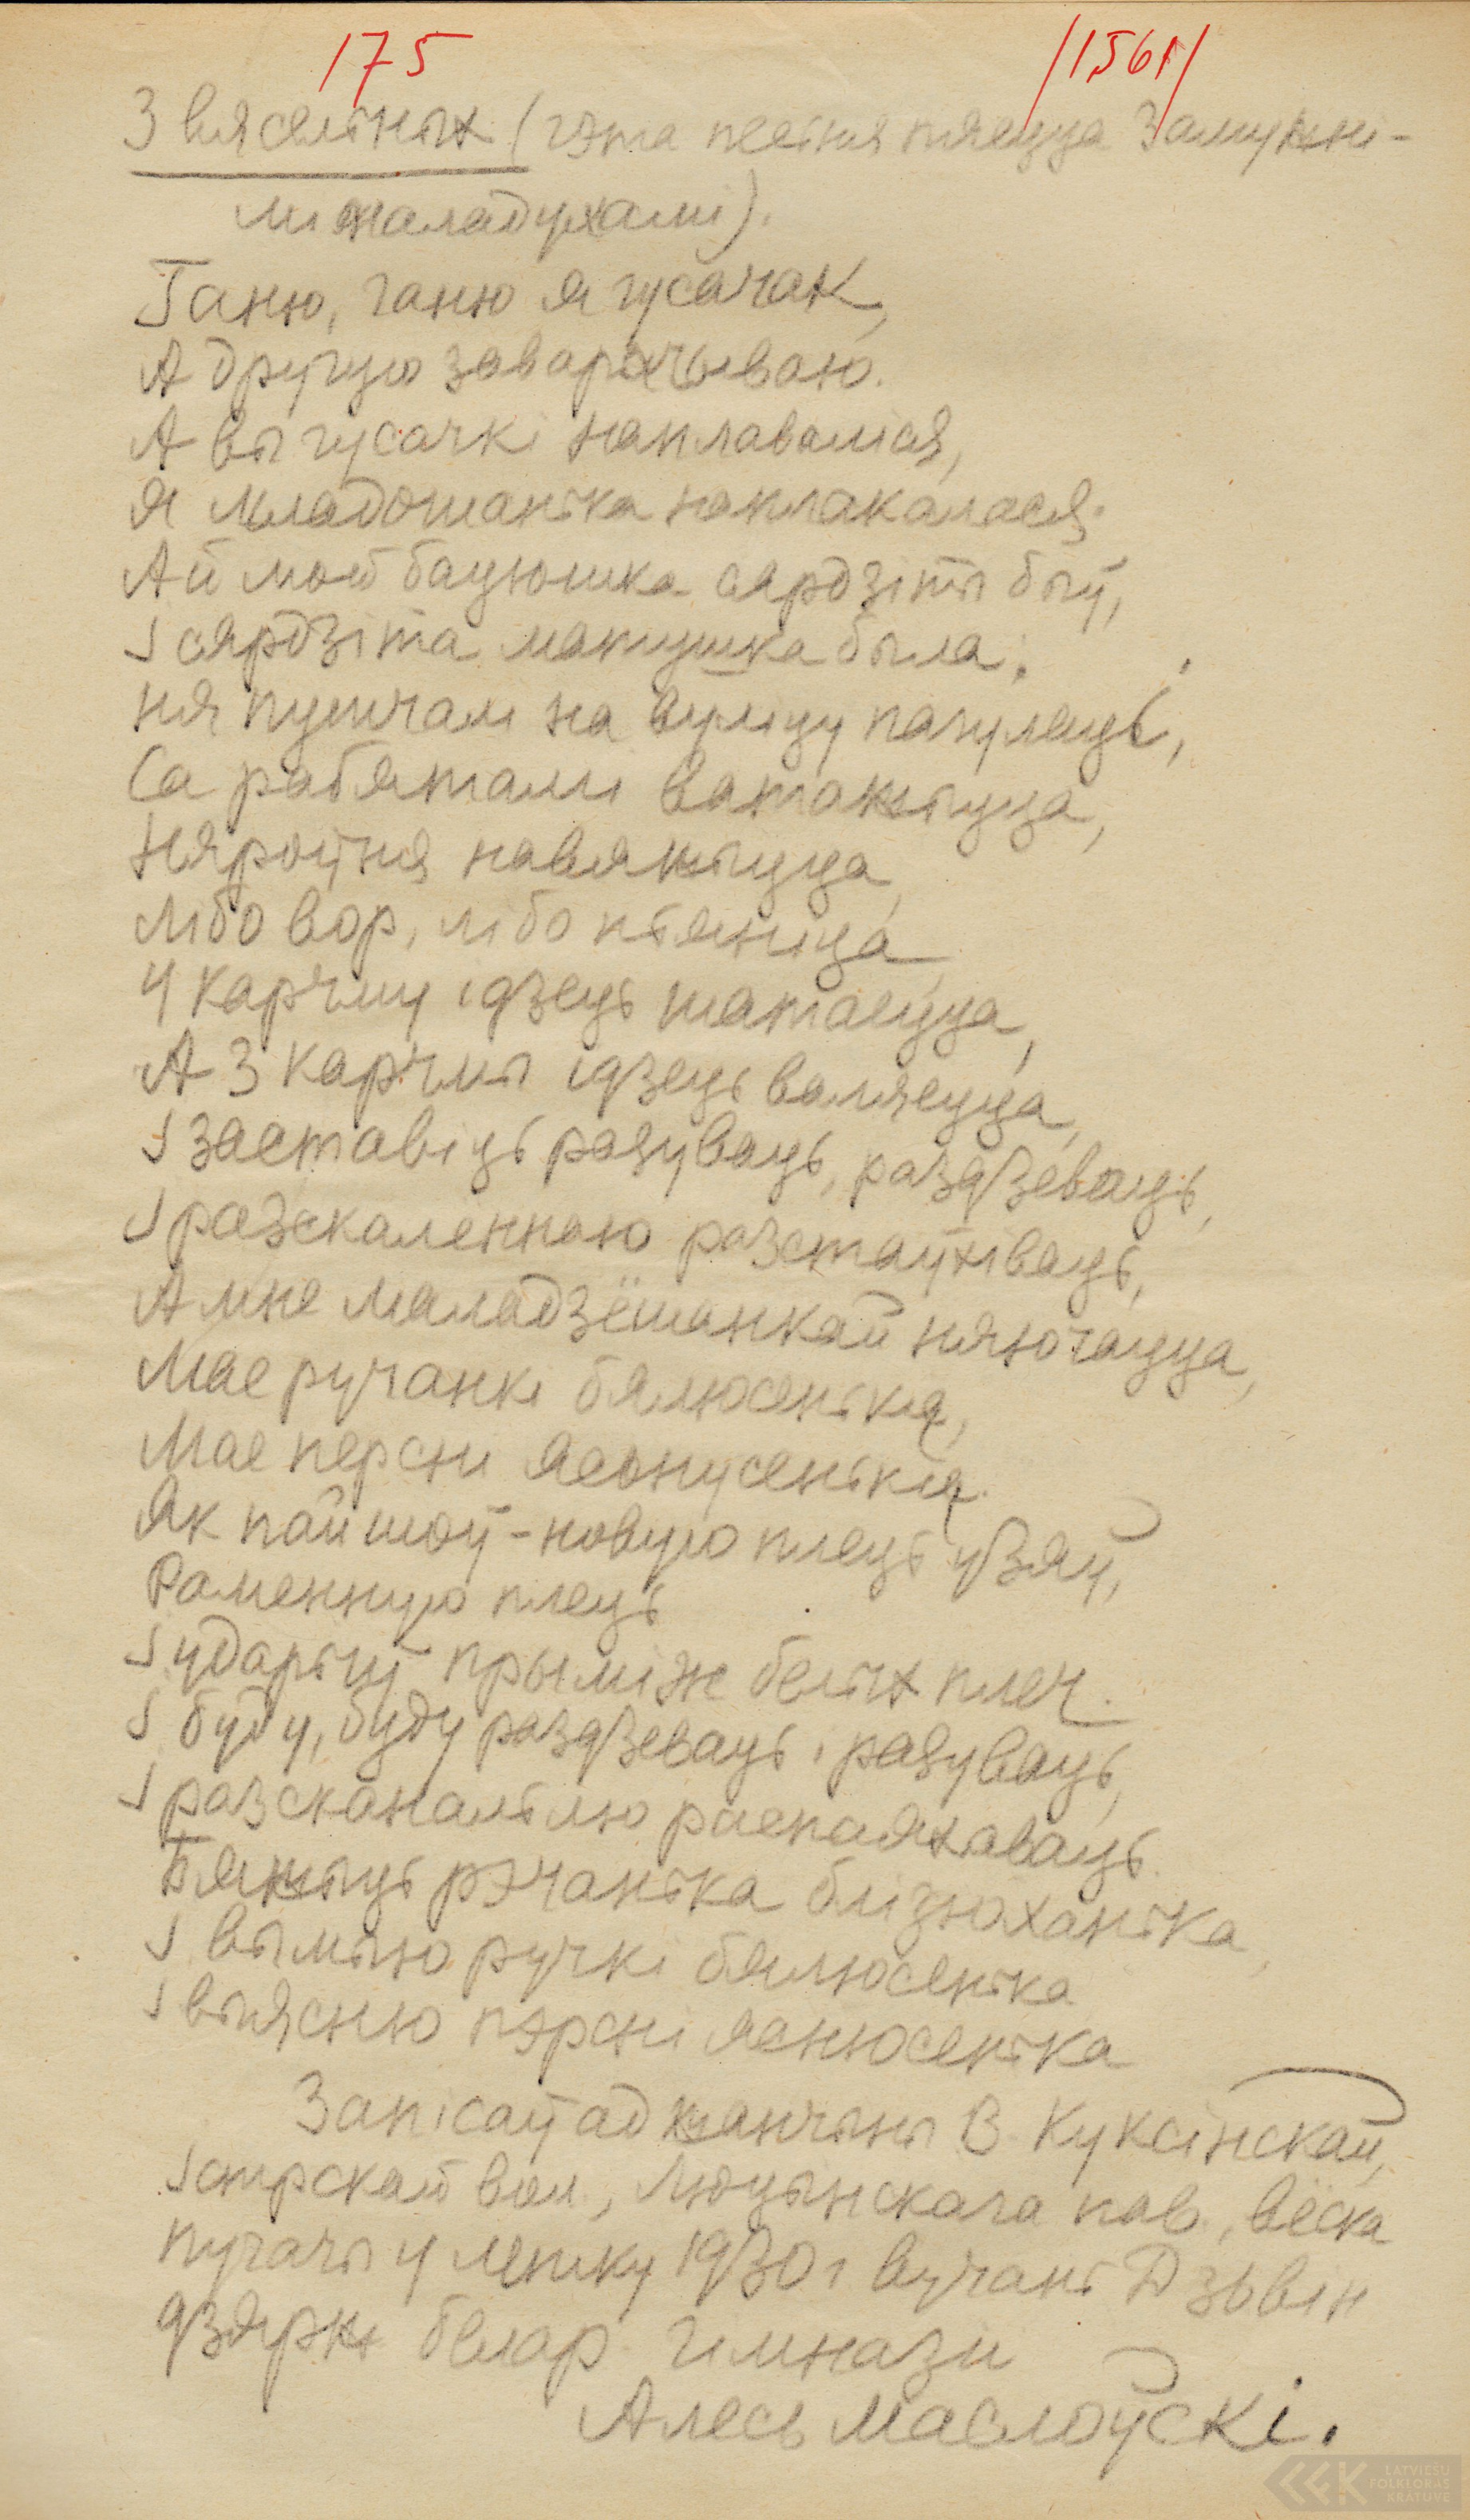 175 /1561/
З вясельных (гэта песня пяецца замужні-
мі маладухамі).
Ганю, ганю я гусачак,
А другую заварачываю.
А вы гусачкі наплаваліся,
Я младошанька наплакалася.
Ай мой бацюшка сярдзіты быў,
І сярдзіта матушка была;
Ня пушчалі на вуліцу пагуляць,
Са рабятамі
Няроўня навяжыцца,
Лібо вор, лібо п'яніца,
У карчму ідзець шатаецца,
А з карчмы ідзець валяецца,
І заставіць разуваць, раздзеваць,
І
А мне маладзёшанкай ня
Мае ручанкі бялюсенькія,
Мае персні яснусенькія.
Як пайшоў - новую плець узяў,
Раменную плець
І ударыў прыміж белых плеч.
І буду, буду раздзеваць, разуваць,
І
Бяжыць рэчанька блізюханька,
І вымыю ручкі бялюсенька
І выясню пэрсні яснюсенька
Запісаў ад жанчыны В. Куксінскай,
Істрскай вол., Люцынскага пав., вёска
Пугачы у летку 1930 г вучань Дзьвін
дзярж белар гімназіі
Алесь Маслоўскі.
LATVIEŠU
FOLKLORAS
KRĀTUVE